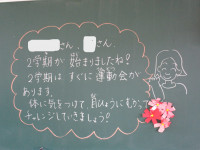 さん、　さん、
2学期が始まりましたね!
2学期は、すぐに運動会が
あります。
体に気をつけて、目ひょうにむかって
チャレンジしていきましょう!